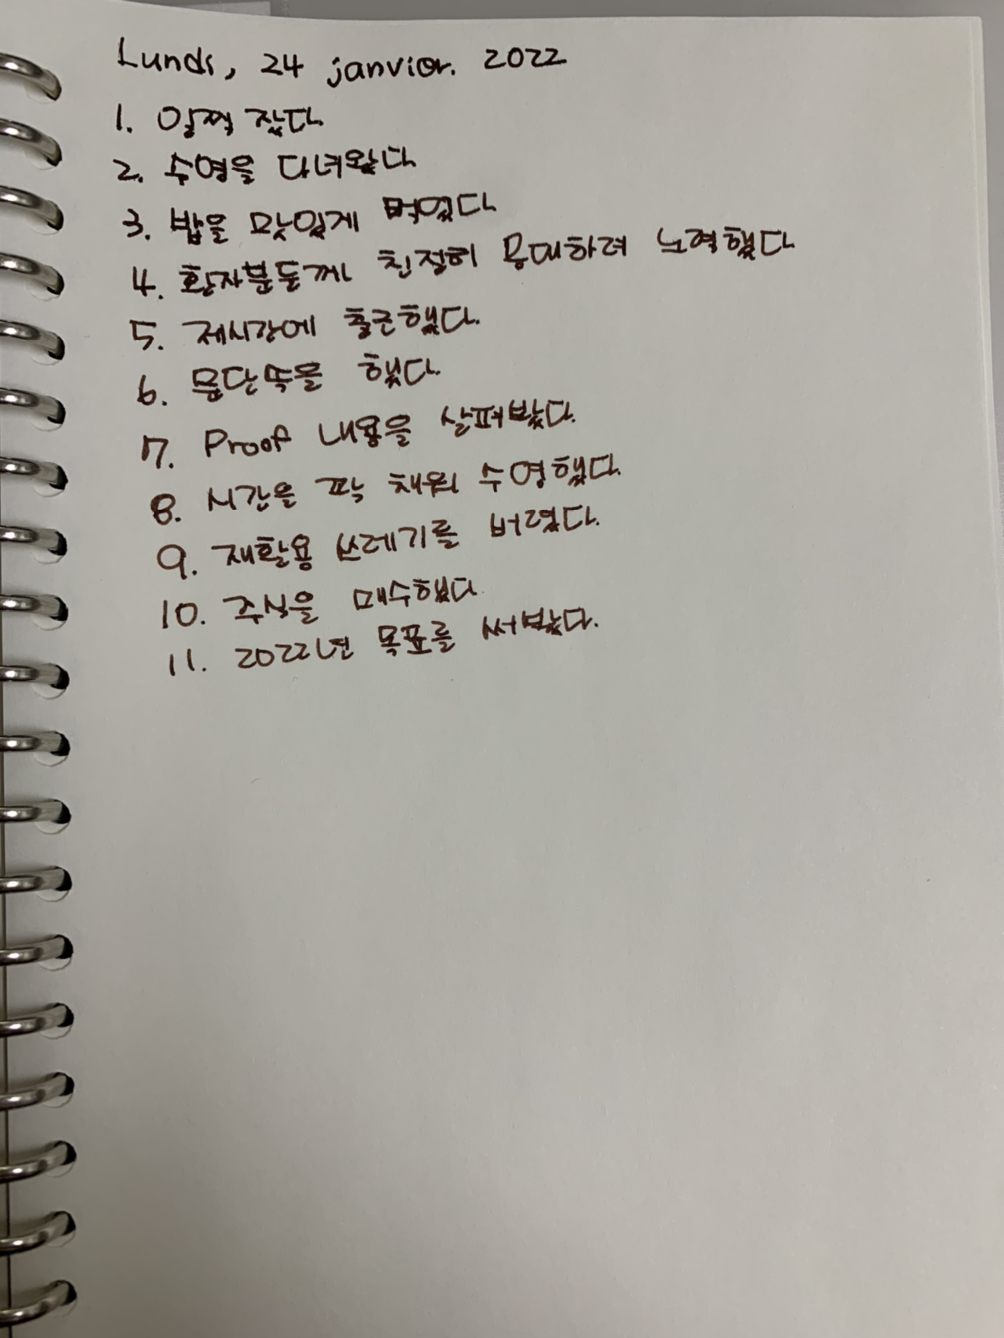 Lundi, 24 janvier. 2022
1. 일찍 잤다
2. 수영을 다녀왔다
3. 밥을 맛있게 먹었다
4. 환자분들께 친절히 응대하려 노력했다
5. 제시간에 출근했다.
6. 문단속을 했다.
7. Proof 내용을 살펴봤다.
8. 시간을 꽉 채워 수영했다.
9. 재활용 쓰레기를 버렸다.
10. 주식을 매수했다
11. 2022년 목표를 써봤다.